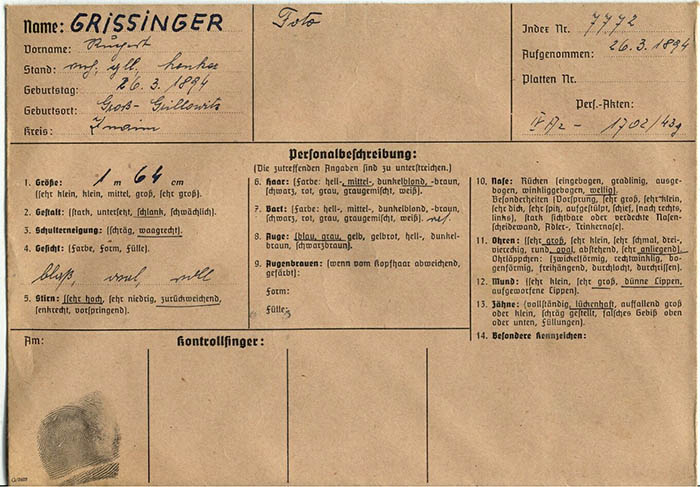 Name: GRISSINGER
Vorname: Rupert
Stand:
Geburtstag: 26. 3. 1894
Geburtsort: Groß-Grillowitz
Kreis: Znaim
Foto
Index Nr. 7772
Aufgenommen: 26.3.1894
Platten Nr.
Pers.-Akten:
1702/43g
Personalbeschreibung:
(Die zutreffenden Angaben sind zu unterstreichen.)
1. Größe: 1 m 64 cm
(sehr klein, klein, mittel, groß, sehr groß).
2. Gestalt: (stark, untersetzt, schlank, schwächlich).
3. Schulterneigung: (schräg, waagrecht).
4. Gesicht: (Farbe, Form, Fülle).
blaß, oval, voll
5. Stirn: (sehr hoch, sehr niedrig, zurückweichend,
senkrecht, vorspringend).
6. Haar: (Farbe: hell-, mittel-, dunkelblond, -braun,
schwarz, rot, grau, graugemischt, weiß).
7. Bart: (Farbe: hell-, mittel-, dunkelblond, -braun,
schwarz, rot, grau, graugemischt, weiß).
8. Auge: (blau, grau, gelb, gelbrot, hell-, dunkel-
braun, schwarzbraun).
9. Augenbrauen: (wenn vom Kopfhaar abweichend,
gefärbt):
Form:
Fülle:
10. Nase: Rücken (eingebogen, gradlinig, ausge-
bogen, winkliggebogen, wellig).
Besonderheiten (Vorsprung, sehr groß, sehr klein,
sehr dick, sehr spitz, aufgestülpt, schief, nach rechts,
links), stark sichtbare oder verdeckte Nasen-
scheidewand, Adler-, Trinkernase).
11. Ohren: (sehr groß, sehr klein, sehr schmal, drei-,
viereckig, rund, oval, abstehend, sehr anliegend).
Ohrläppchen: (zwickelförmig, rechtwinklig, bo-
genförmig, freihängend, durchlocht, durchrissen).
12. Mund: (sehr klein, sehr groß, dünne Lippen,
aufgeworfene Lippen).
13. Zähne: (vollständig, lückenhaft, auffallend groß
oder klein, schräg gestellt, falsches Gebiß oben
oder unten, Füllungen).
14. Besondere Kennzeichen:
Am:
Kontrollfinger: